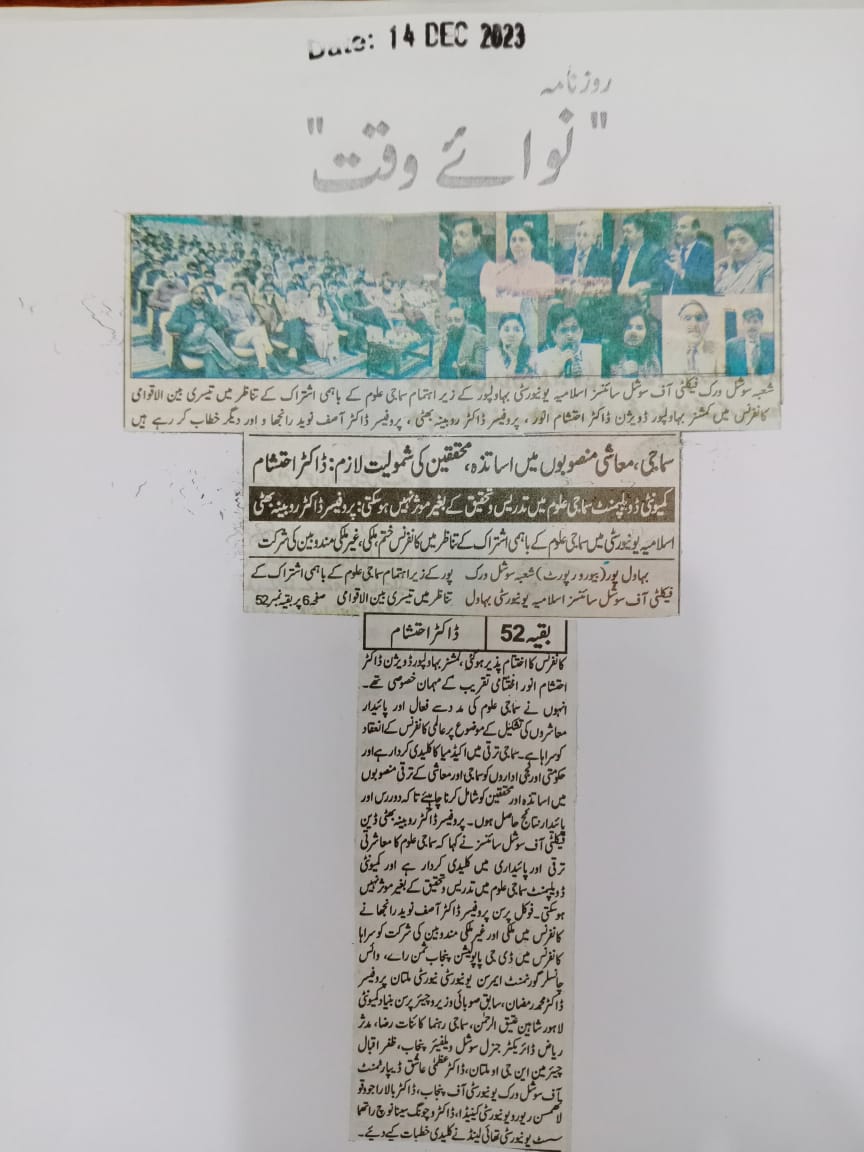 Date: 14 DEC 2023
روزنامہ
"نوائے وقت"
شعبہ سوشل ورک فیکلٹی آف سوشل سائنسز اسلامیہ یونیورسٹی بہاولپور کے زیر اہتمام سماجی علوم کے باہمی اشتراک کے تناظر میں تیسری بین الاقوامی
کانفرنس میں کمشنر بہاولپور ڈویژن ڈاکٹر احتشام انور ، پروفیسر ڈاکٹر روبینہ بھٹی ، پروفیسر ڈاکٹر آصف نوید رانجھا و اور دیگر خطاب کر رہے ہیں
سماجی، معاشی منصوبوں میں اساتذہ، محققین کی شمولیت لازم: ڈاکٹر احتشام
کمیونٹی ڈویلپمنٹ سماجی علوم میں تدریس و تحقیق کے بغیر موثر نہیں ہوسکتی: پروفیسر ڈاکٹر روبینہ بھٹی
اسلامیہ یونیورسٹی میں سماجی علوم کے باہمی اشتراک کے تناظر میں کانفرنس ختم، ملکی، غیر ملکی مندوبین کی شرکت
بہاول پور (بیورو رپورٹ) شعبہ سوشل ورک
فیکلٹی آف سوشل سائنسز اسلامیہ یونیورسٹی بہاول
پور کے زیر اہتمام سماجی علوم کے باہمی اشتراک کے
تناظر میں تیسری بین الاقوامی صفحہ 6 پر بقیہ نمبر 52
بقیہ 52 ڈاکٹر احتشام
کانفرنس کا اختتام پذیر ہوگئی، کمشنر بہاولپور ڈویژن ڈاکٹر
احتشام انور اختتامی تقریب کے مہمان خصوصی تھے۔
انہوں نے سماجی علوم کی مدد سے فعال اور پائیدار
معاشروں کی تشکیل کے موضوع پر عالمی کانفرنس کے انعقاد
کو سراہا ہے۔ سماجی ترقی میں اکیڈمیا کا کلیدی کردار ہے اور
حکومتی اور نجی اداروں کو سماجی اور معاشی کے ترقی منصوبوں
میں اساتذہ اور محققین کو شامل کرنا چاہیئے تاکہ دوررس اور
پائیدار نتائج حاصل ہوں۔ پروفیسر ڈاکٹر روبینہ بھٹی ڈین
فیکلٹی آف سوشل سائنسز نے کہا کہ سماجی علوم کا معاشرتی
ترقی اور پائیداری میں کلیدی کردار ہے اور کمیونٹی
ڈویلپمنٹ سماجی علوم میں تدریس و تحقیق کے بغیر موثر نہیں
ہوسکتی۔ فوکل پرسن پروفیسر ڈاکٹر آصف نوید رانجھا نے
کانفرنس میں ملکی اور غیر ملکی مندوبین کی شرکت کو سراہا
کانفرنس میں ڈی جی پاپولیشن پنجاب ثمن رائے، وائس
چانسلر گورنمنٹ ایمرسن یونیورسٹی نیورسٹی ملتان پروفیسر
ڈاکٹر محمد رمضان، سابق صوبائی وزیر و چیئر پرسن بنیاد کمیونٹی
لاہور شاہین عتیق الرحمٰن، سماجی رہنما کائنات رضا، مدثر
ریاض ڈائریکٹر جنرل سوشل ویلفیئر پنجاب، ظفر اقبال
چیئرمین این جی او ملتان، ڈاکٹر عظمیٰ عاشق ڈیپارٹمنٹ
آف سوشل ورک یونیورسٹی آف پنجاب، ڈاکٹر بالا راجو
یونیورسٹی کینیڈا، ڈاکٹر
یونیورسٹی تھائی لینڈ نے کلیدی خطبات کیے دیئے۔